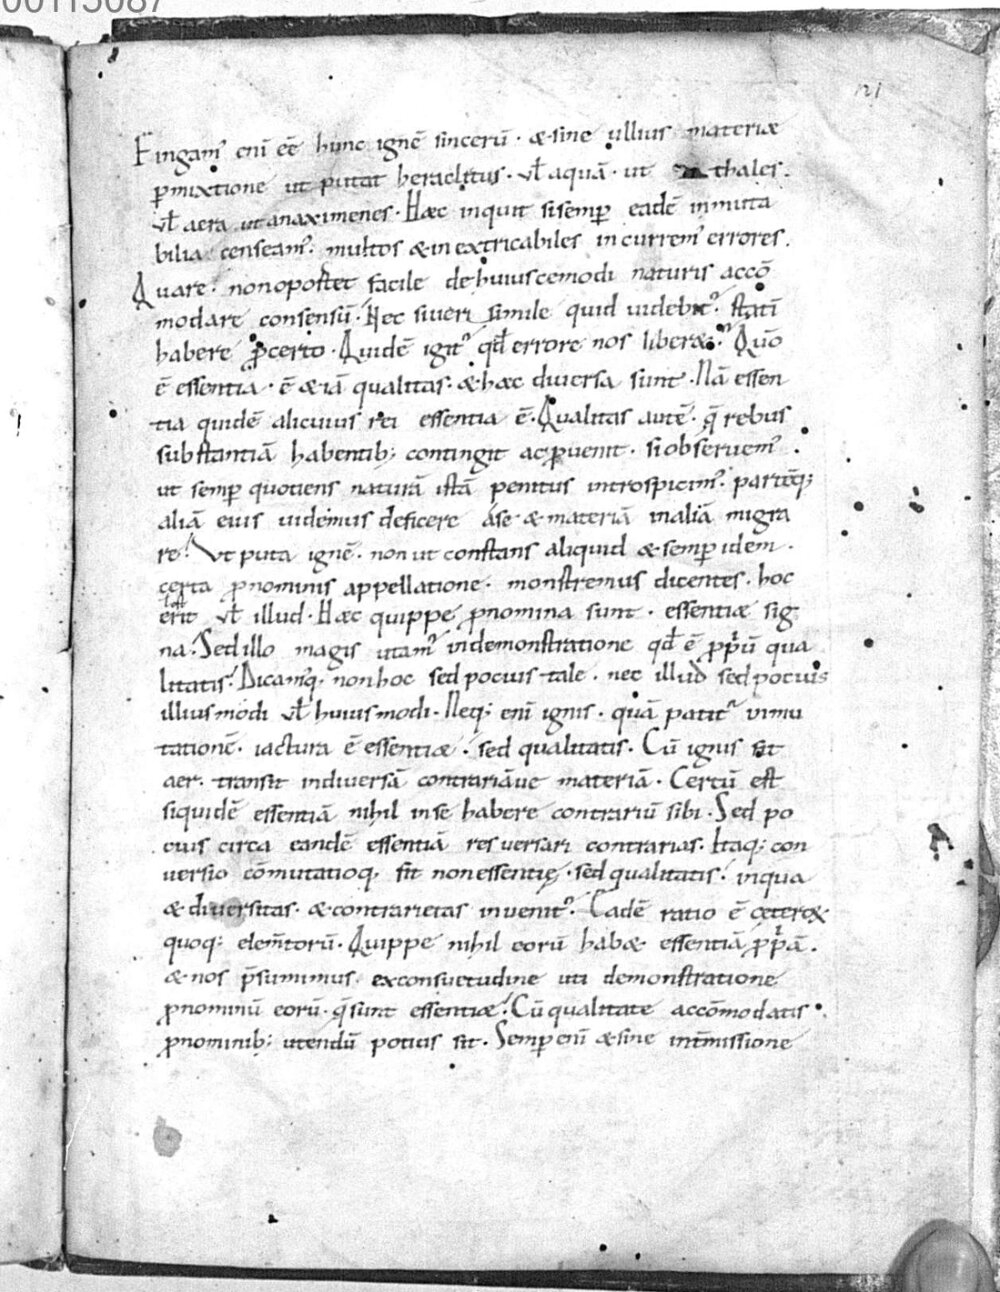 00115087
121
Fingam᾽ eni̅ ee̅ hunc igne̅ sinceru̅ · & sine ullius materiæ
ꝑmixtione ut putat heraclitus · ul̅ aqua̅ · ut thales ·
ul̅ aera ut anaximenes · Hæc inquit si semꝑ eade̅ inmuta
bilia censeam᾽ · multos & inextricabiles incurrem᾽ errores ·
Quare · non oportet facile de huiuscemodi naturis acco̅
modare consensu̅ · Nec si ueri simile quid uidebit᾽ · stati̅
habere ꝓ certo · Quide̅ igit᾽ qd̅ errore nos liber& · Quo̅
e̅ essentia · e̅ & ia̅ qualitas · & hæc diuersa sunt · Na̅ essen
tia quide̅ alicuius rei essentia e̅ · Qualitas aute̅ · q̅ rebus
substantia̅ habentib; contingit ac ꝓuenit · si obseruem᾽ ·
ut semꝑ quotiens natura̅ ista̅ penitus introspicim᾽ · parte̅q;
alia̅ eius uidemus deficere a se & materia̅ in alia̅ migra
re · Ut puta igne̅ · non ut constans aliquid & semꝑ idem ·
certa ꝓnominis appellatione · monstremus dicentes · hoc
erit ul̅ illud · Hæc quippe ꝓnomina sunt · essentiæ sig
na · Sed illo magis utam᾽ in demonstratione qd̅ e̅ ꝓpriu̅ qua
litatis · Dicam᾽q; non hoc sed pocius tale · nec illud sed pocius
illius modi ul̅ huius modi · Neq; eni̅ ignis · qua̅ patit᾽ in mu
tatione̅ · iactura e̅ essentiæ · sed qualitatis · Cu̅ ignis fit
aer · transit in diuersa̅ contraria̅ue materia̅ · Certu̅ est
siquide̅ essentia̅ nihil in se habere contrariu̅ sibi · Sed po
cius circa eande̅ essentia̅ res uersari contrarias · Itaq; con
uersio co̅mutatioq; fit non essentię · sed qualitatis · in qua
& diuersitas · & contrarietas inuenit᾽ · Eade̅ ratio e̅ ceteroꝝ
quoq; elem̅toru̅ · Quippe nihil eoru̅ hab& essentia̅ ꝓpria̅ ·
& nos p̅sumimus · ex consuetudine uti demonstratione
ꝓnominu̅ eoru̅ · q̅ sunt essentiæ · Cu̅ qualitate acco̅modatis ·
ꝓnominib; utendu̅ potius sit · Semꝑ eni̅ & sine int̅missione